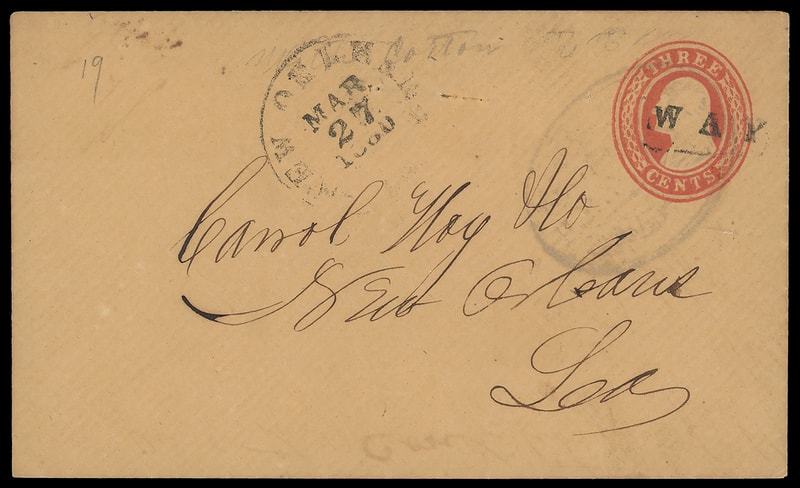 19
Cotton
NEW ORLEANS
MAR
27
1860
THREE
CENTS
WAY
Carrol Hoy & Co
New Orleans
Lea